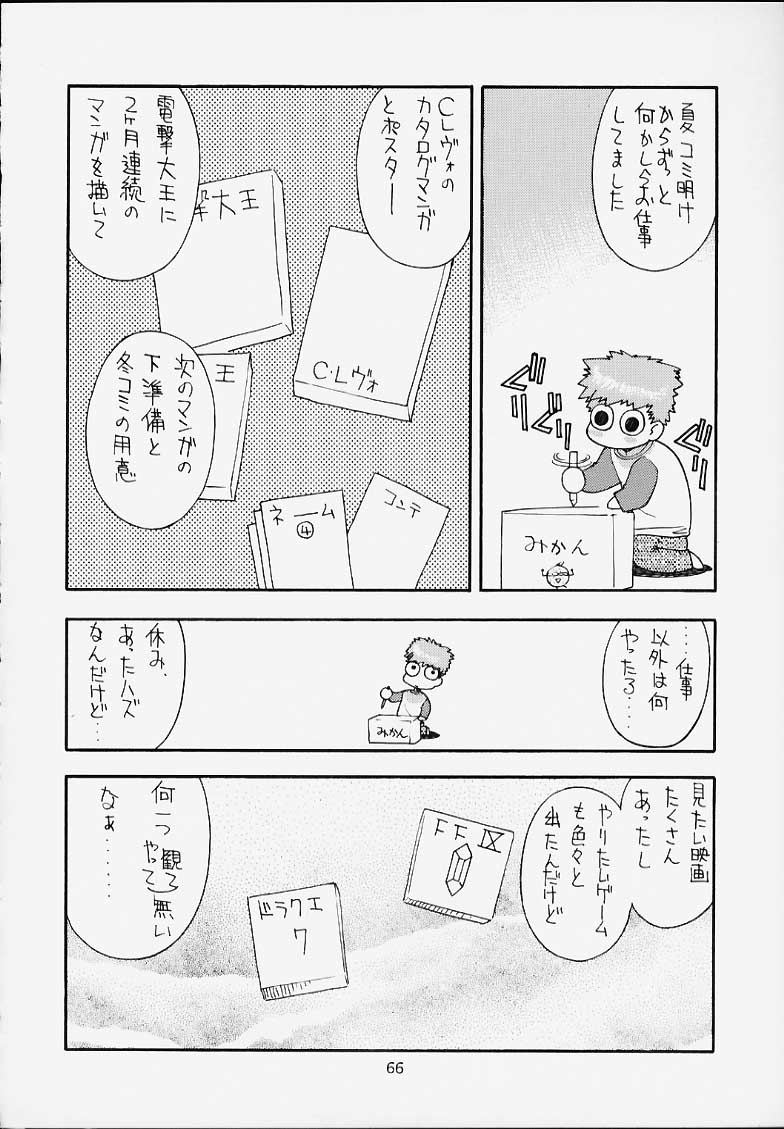 夏コミ明け
からずっと
何かしらお仕事
してました
グリ
グリ
グリ
みかん
CLレヴォの
カタログマンガ
とポスター
C・Lレヴォ
電撃大王に
2ヶ月連続の
マンガを描いて
撃大王
王
次のマンガの
下準備と
冬コミの用意
ネーム
④
コンテ
‥‥仕事
以外は何
やったろ‥‥
みかん
休み、
あったハズ
なんだけど‥‥
見たい映画
たくさん
あったし
やりたいゲーム
も色々と
出たんだけど
FFⅨ
ドラクエ
7
何一つ観て
やって無い
なぁ‥‥‥‥
66